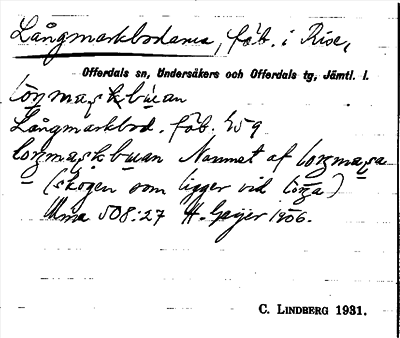 Långmarkbodarna, fäb. i Rise,
Offerdals sn, Undersåkers och Offerdals tg, Jämtl. l.
loŋmaskbu̇an
Långmarkbod. fäb. 459
loŋmaskbuan Namnat af loŋmasa
(skogen som ligger vid loŋa)
Uma 508:27 H. Geijer 1906.
C. LINDBERG 1931.